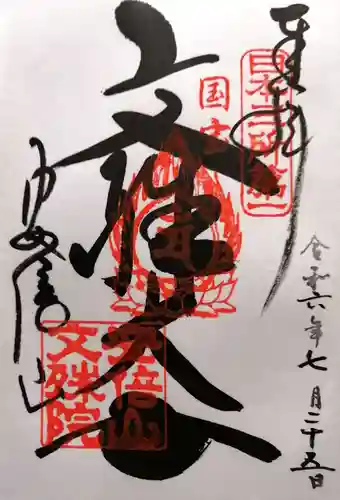 奉拝
日本三所第一
国宝
文殊
安倍山
文殊院
安倍山
令和六年七月二十五日